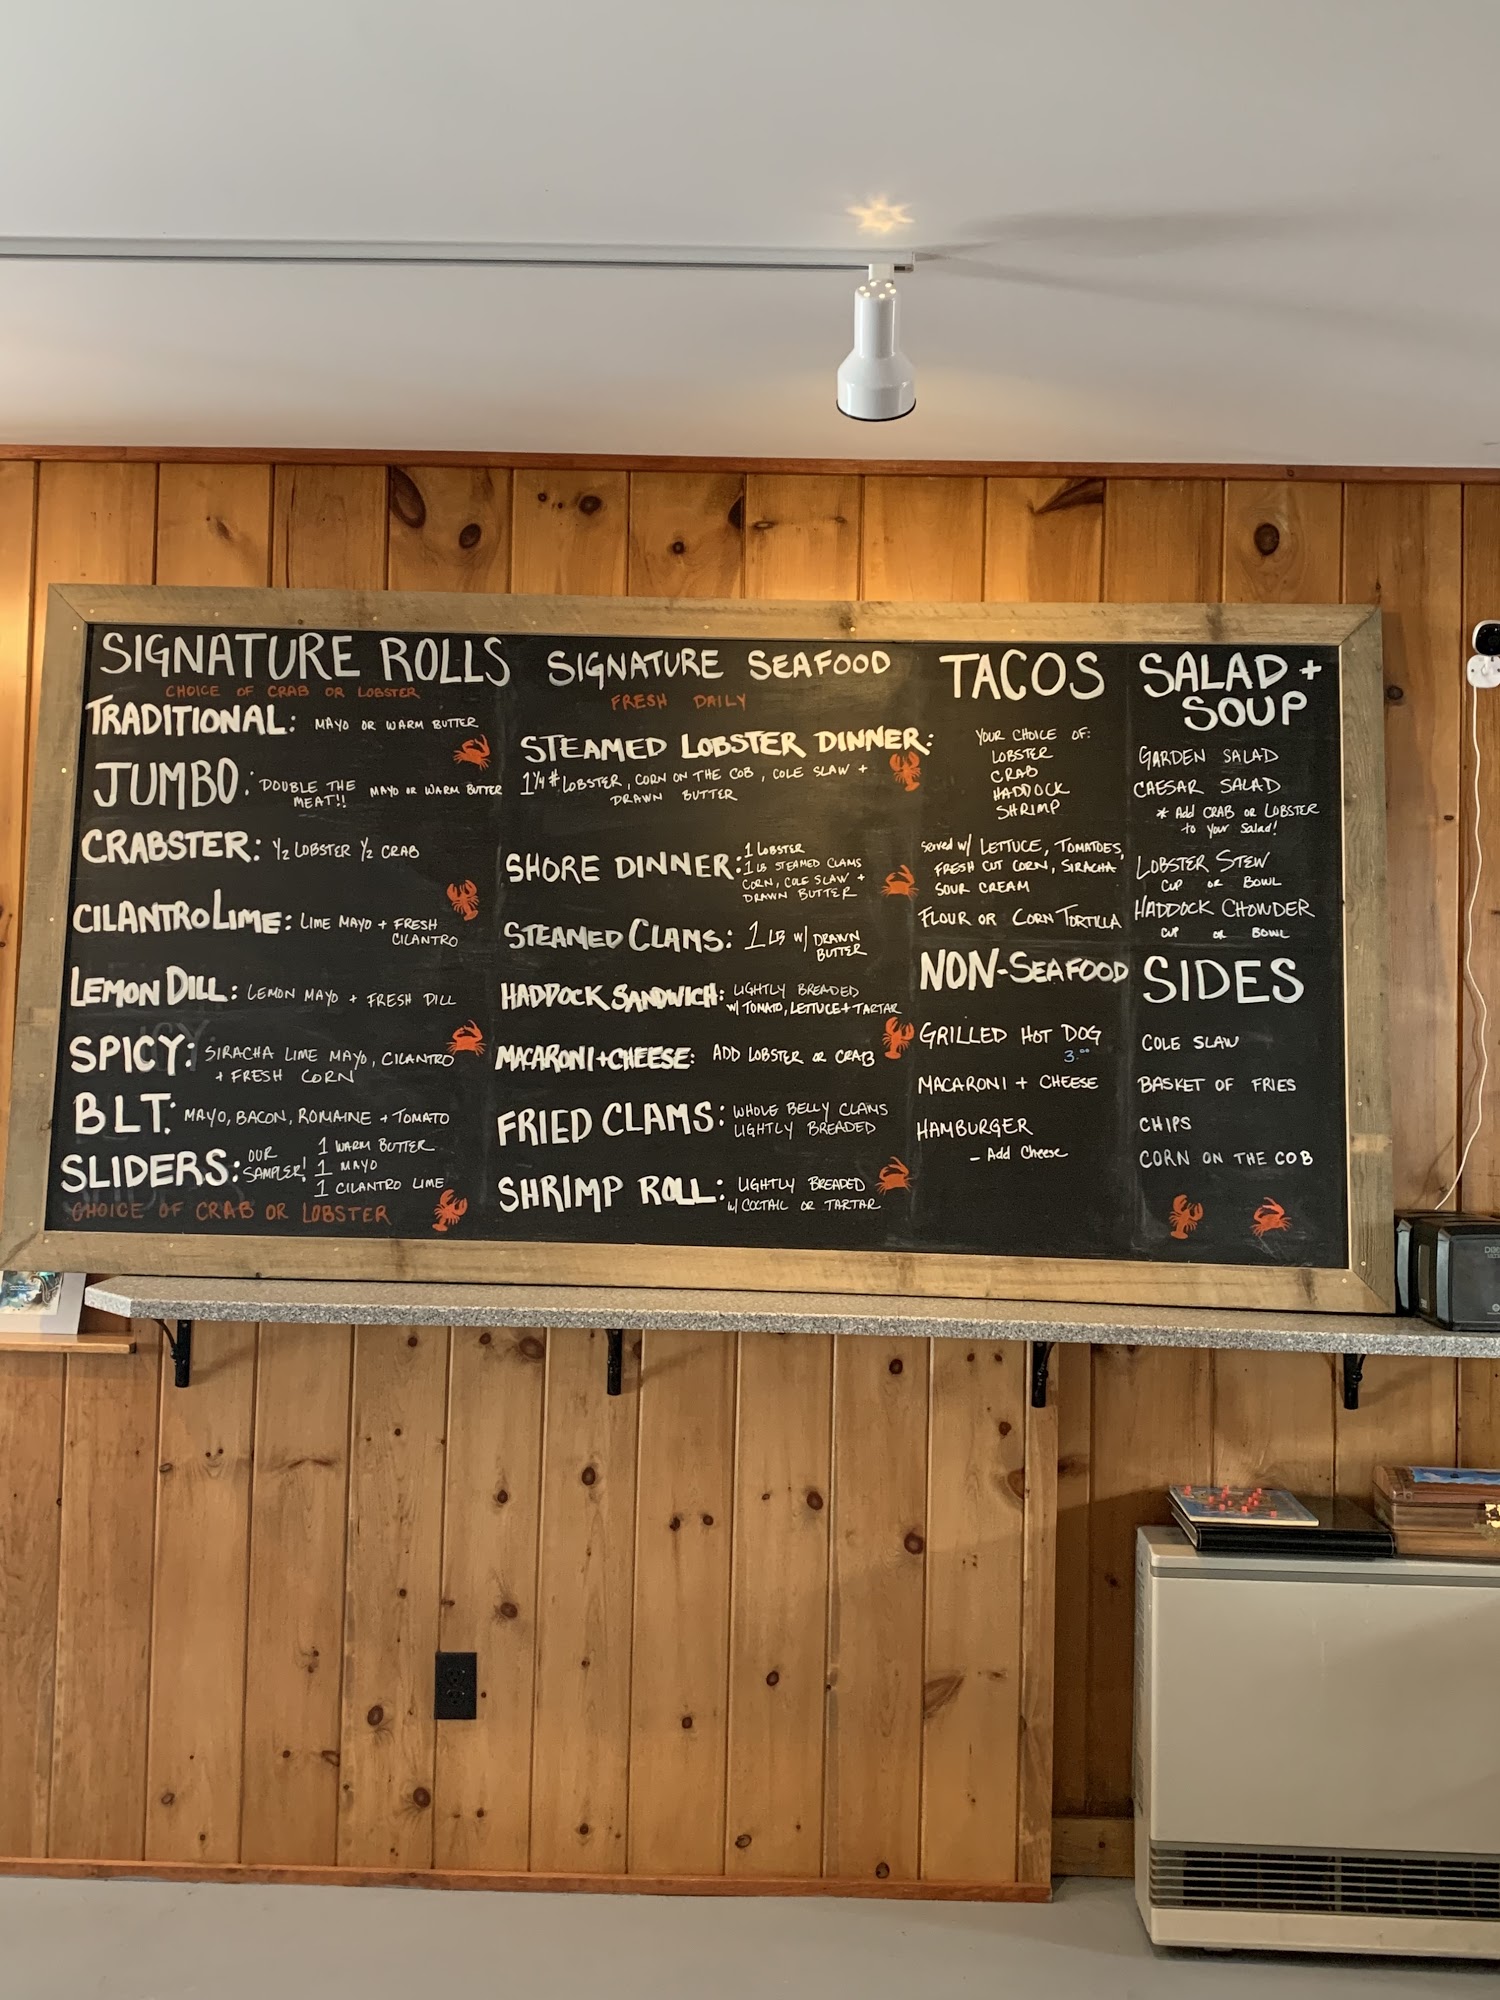 SIGNATURE ROLLS
CHOICE OF CRAB OR LOBSTER
TRADITIONAL: MAYO OR WARM BUTTER
JUMBO: DOUBLE THE MEAT!! MAYO OR WARM BUTTER
CRABSTER: 1/2 LOBSTER 1/2 CRAB
CILANTRO LIME: LIME MAYO + FRESH
CILANTRO
LEMON DILL: LEMON MAYO + FRESH DILL
SPICY: SIRACHA LIME MAYO, CILANTRO
+ FRESH CORN
BLT: MAYO, BACON, ROMAINE + TOMATO
SLIDERS: OUR SAMPLER! 1 WARM BUTTER
1 MAYO
1 CILANTRO LIME
CHOICE OF CRAB OR LOBSTER
SIGNATURE SEAFOOD
FRESH DAILY
STEAMED LOBSTER DINNER:
1 1/4 # LOBSTER, CORN ON THE COB, COLE SLAW +
DRAWN BUTTER
SHORE DINNER: 1 LOBSTER
1 LB STEAMED CLAMS
CORN, COLE SLAW +
DRAWN BUTTER
STEAMED CLAMS: 1 LB W/ DRAWN
BUTTER
HADDOCK SANDWICH: LIGHTLY BREADED
W/ TOMATO, LETTUCE + TARTAR
MACARONI + CHEESE: ADD LOBSTER OR CRAB
FRIED CLAMS: WHOLE BELLY CLAMS
LIGHTLY BREADED
SHRIMP ROLL: LIGHTLY BREADED
W/ COCTAIL OR TARTAR
TACOS
YOUR CHOICE OF:
LOBSTER
CRAB
HADDOCK
SHRIMP
Served w/ LETTUCE, TOMATOES,
FRESH CUT CORN, SIRACHA
SOUR CREAM
FLOUR OR CORN TORTILLA
NON-SEAFOOD
GRILLED HOT DOG
3.00
MACARONI + CHEESE
HAMBURGER
- Add Cheese
SALAD +
SOUP
GARDEN SALAD
CAESAR SALAD
* Add CRAB or LOBSTER
to your Salad!
LOBSTER STEW
CUP OR BOWL
HADDOCK CHOWDER
CUP OR BOWL
SIDES
COLE SLAW
BASKET OF FRIES
CHIPS
CORN ON THE COB